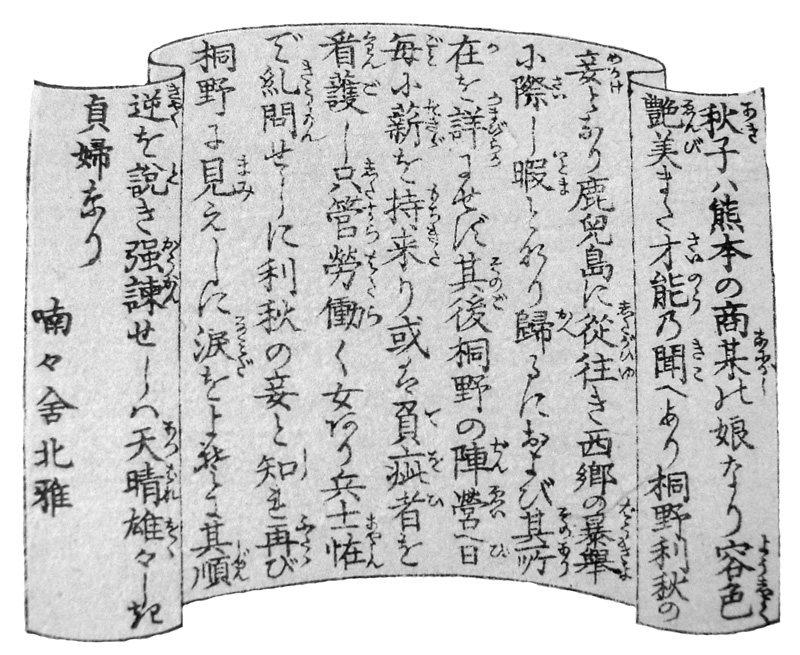 秋子ハ熊本の商某の娘なり容色
艶美また才能の聞へあり桐野利秋の
妾となり鹿児島に従往き西郷の暴挙
に際し暇となり帰るにおよび其所
在を詳にせず其後桐野の陣営へ日
毎に薪を持来り或は負疵者を
看護し只管労働く女あり兵士怪
で糺問せしに利秋の妾と知れ再び
桐野に見えしに涙をよせて其順
逆を説き強諫せしハ天晴雄々しき
貞婦なり
喃々舎北雅